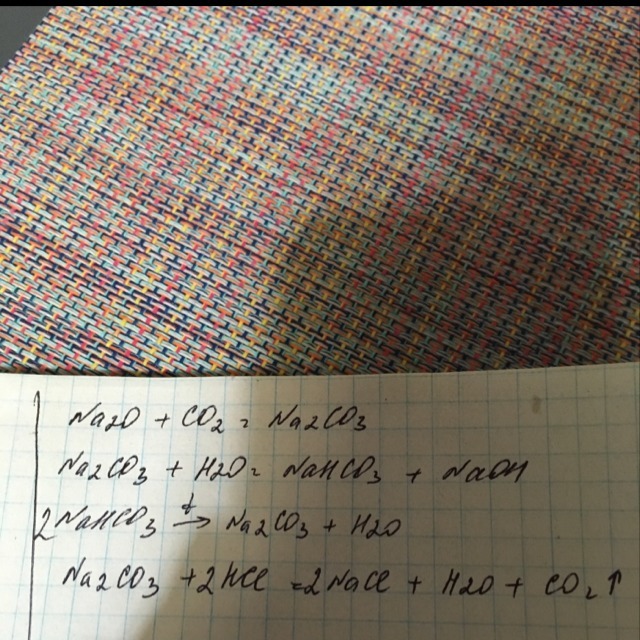 Na2O + CO2 = Na2CO3
Na2CO3 + H2O = NaHCO3 + NaOH
2NaHCO3 t→ Na2CO3 + H2O
Na2CO3 + 2HCl = 2NaCl + H2O + CO2↑